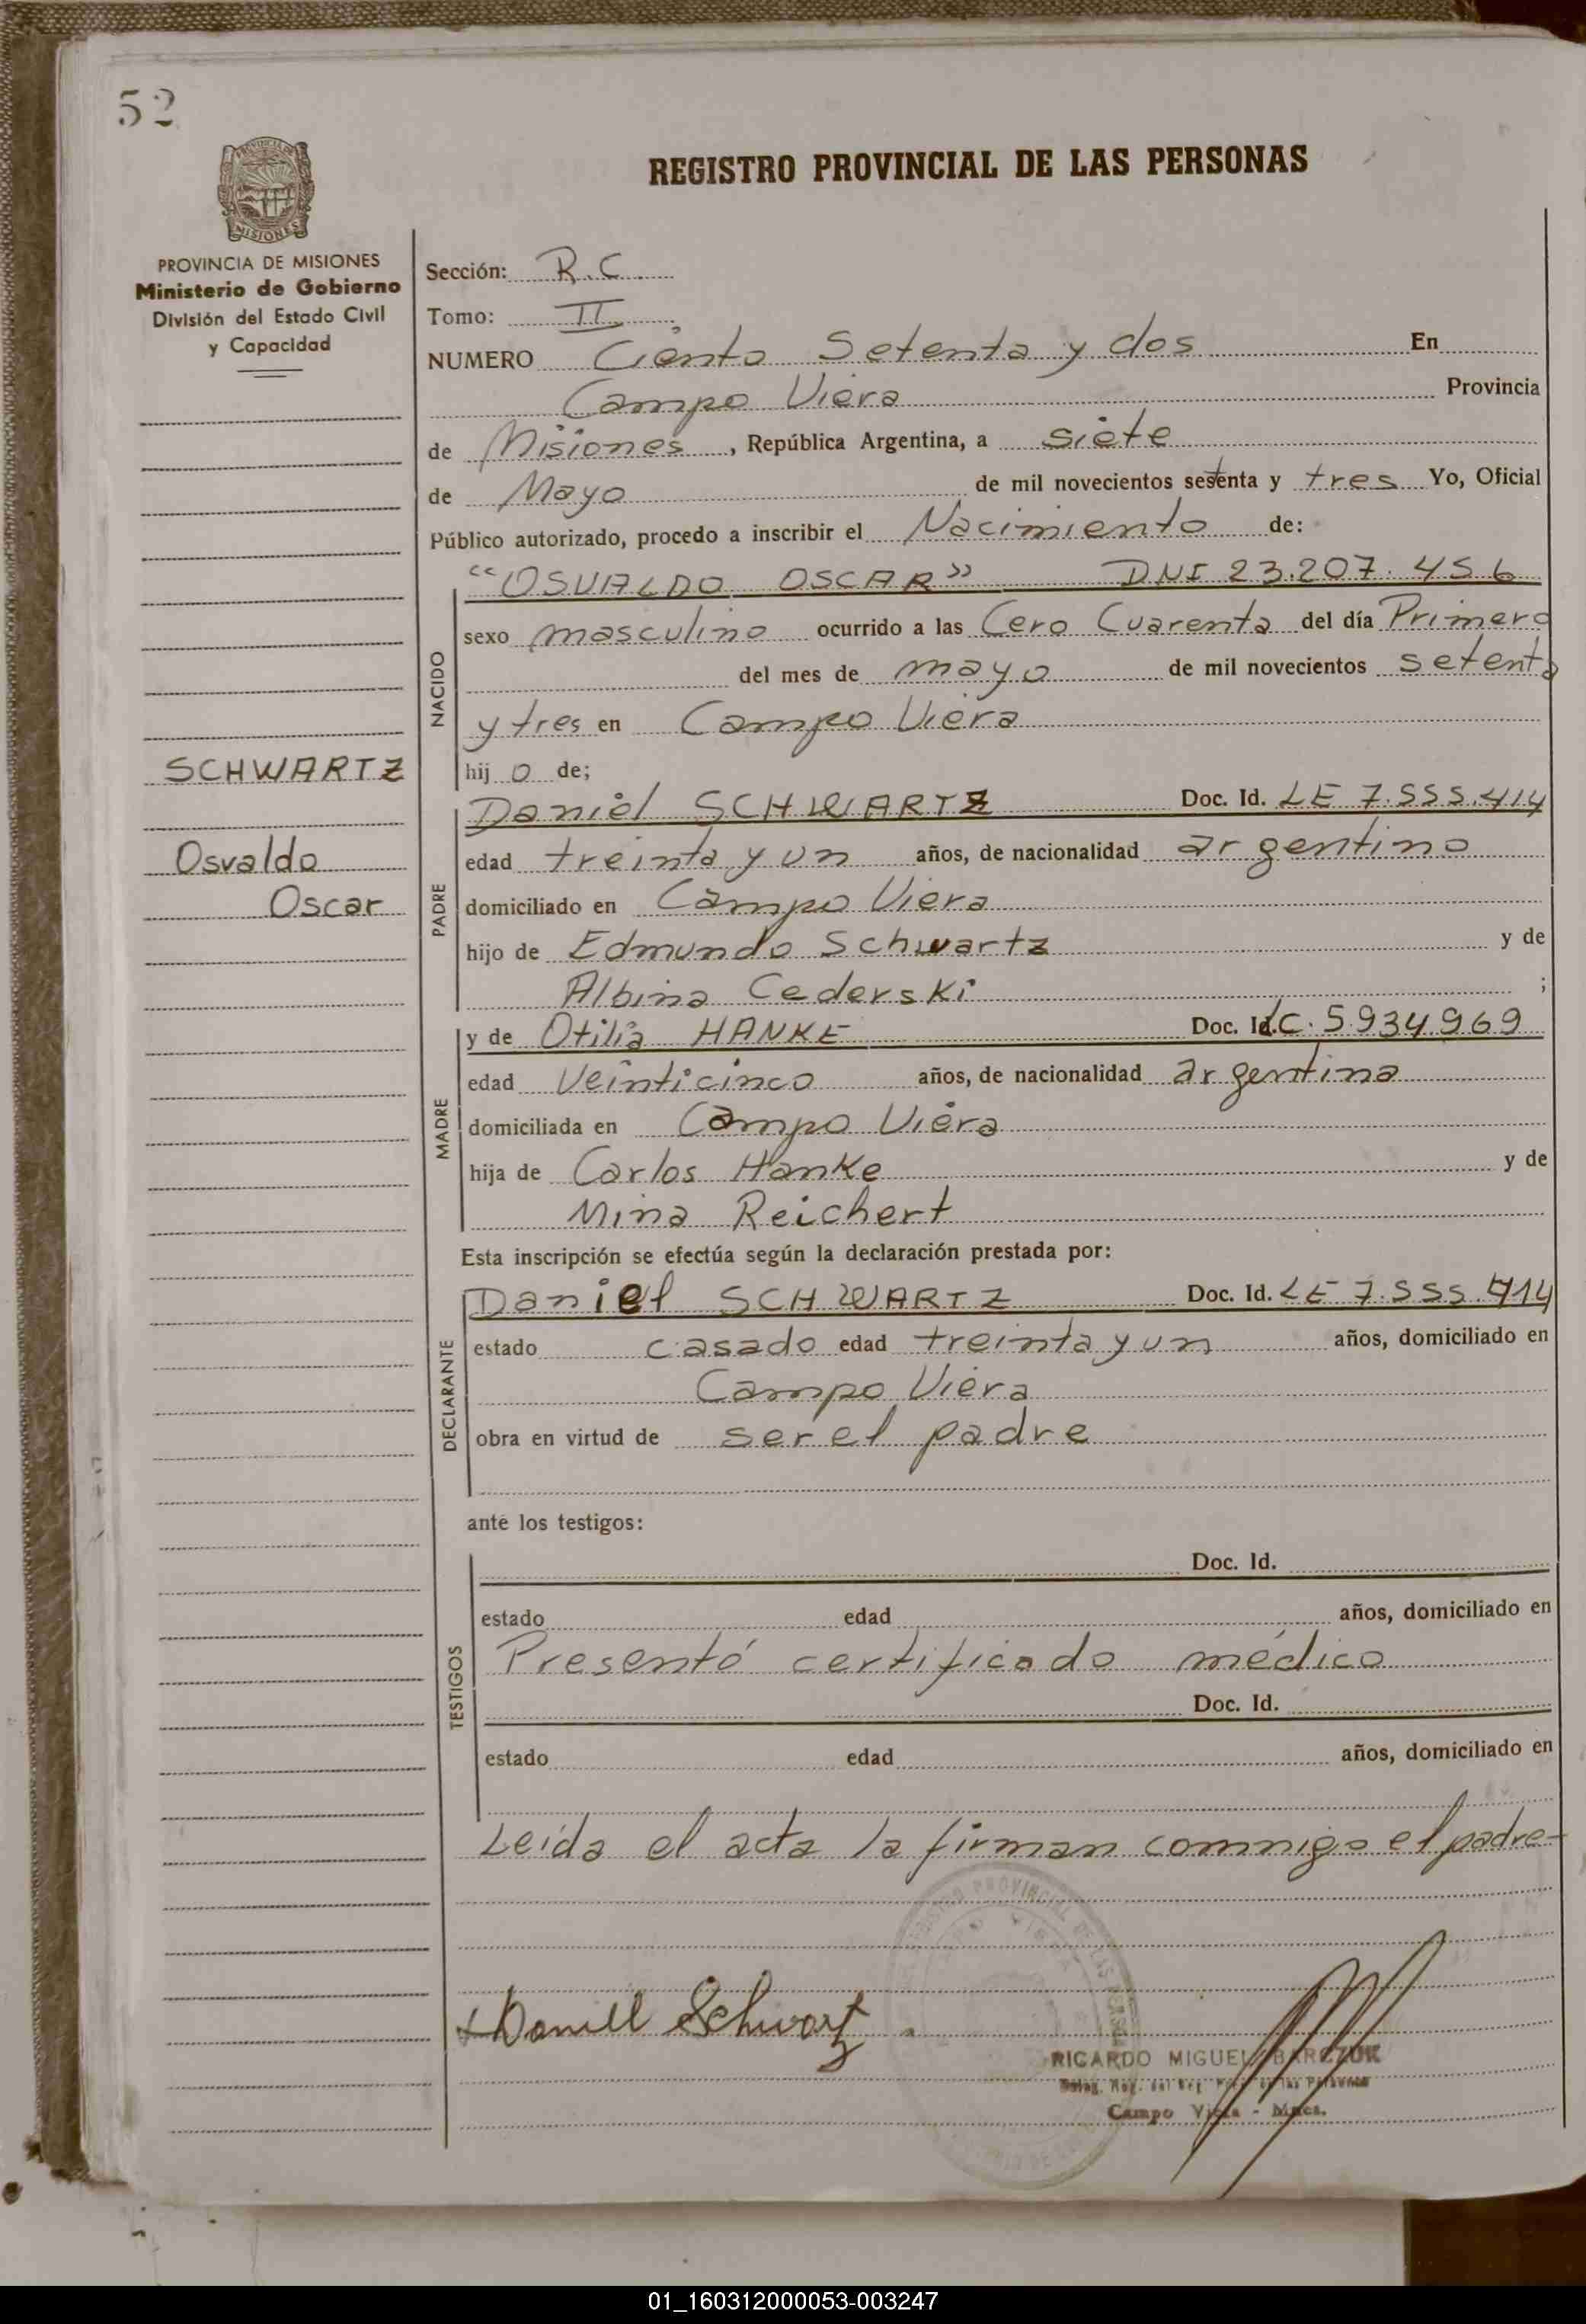 52
REGISTRO PROVINCIAL DE LAS PERSONAS
PROVINCIA DE MISIONES
Ministerio de Gobierno
División del Estado Civil
y Capacidad
SCHWARTZ
Osvaldo
Oscar
Sección: R.C.
Tomo: II
NUMERO Ciento Setenta y dos En
Campo Viera Provincia
de Misiones, República Argentina, a siete
de Mayo de mil novecientos setenta y tres Yo, Oficial
Público autorizado, procedo a inscribir el Nacimiento de:
"OSVALDO OSCAR" DNI 23.207.456
NACIDO
sexo masculino ocurrido a las Cero Cuarenta del día Primero
del mes de mayo de mil novecientos setenta
y tres en Campo Viera
hijo de;
PADRE
Daniel SCHWARTZ Doc. Id. LE 7.555.414
edad treinta y un años, de nacionalidad argentino
domiciliado en Campo Viera
hijo de Edmundo Schwartz y de
Albina Cederski ;
MADRE
y de Otilia HANKE Doc. Id. LC. 5.934.969
edad Veinticinco años, de nacionalidad argentina
domiciliada en Campo Viera
hija de Carlos Hanke y de
Mina Reichert
Esta inscripción se efectúa según la declaración prestada por:
DECLARANTE
Daniel SCHWARTZ Doc. Id. LE 7.555.414
estado casado edad treinta y un años, domiciliado en
Campo Viera
obra en virtud de ser el padre
ante los testigos:
TESTIGOS
Doc. Id.
estado edad años, domiciliado en
Presentó certificado médico
Doc. Id.
estado edad años, domiciliado en
Leída el acta la firman comnigo el padre-
Daniel Schwartz
RICARDO MIGUEL BARCZUK
Campo Viera - Mnes.
01_160312000053-003247